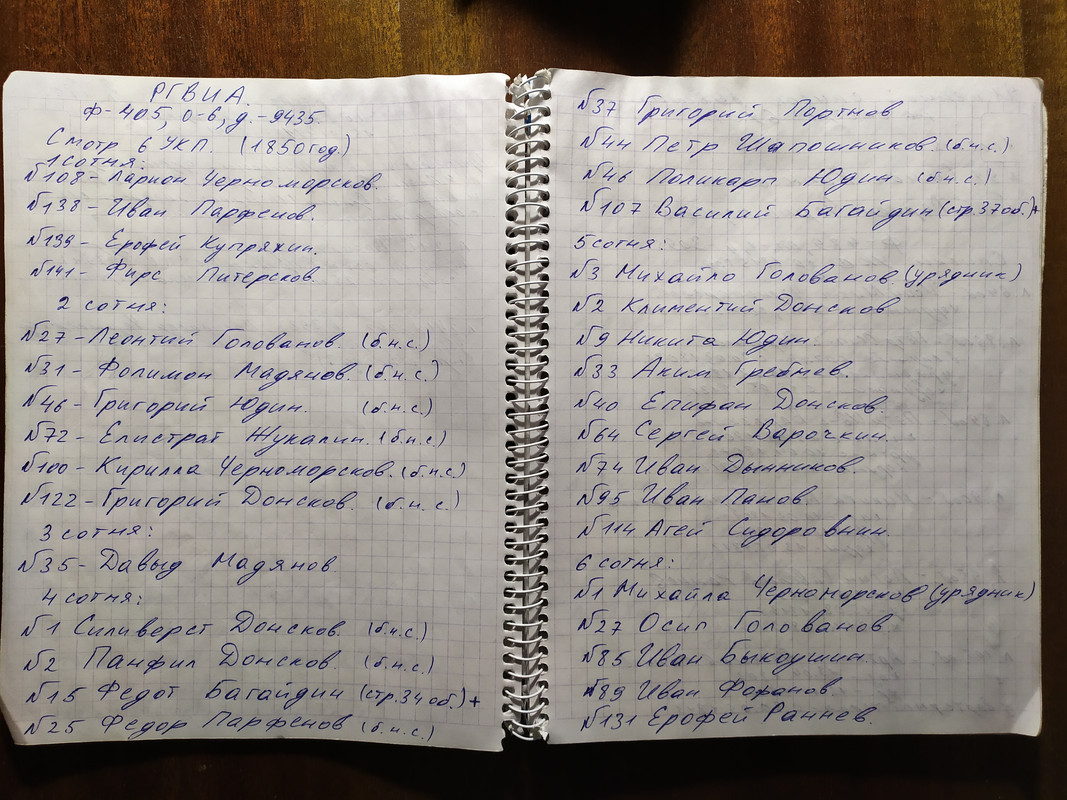 РГВИА.
ф-405, о-6, д.-9435
Смотр 6 УКП. (1850год.)
1 сотня:
№108- Ларион Черноморсков.
№138- Иван Парфенов.
№139- Ерофей Купряхин.
№141- Фирс Питерсков.
2 сотня:
№27-Леонтий Голованов. (б.н.с.)
№31- Фолимон Мадянов. (б.н.с.)
№46-Григорий Юдин. (б.н.с.)
№72- Елистрат Жукалин. (б.н.с.)
№100- Кирилла Черноморсков. (б.н.с)
№122-Григорий Донсков. (б.н.с)
3 сотня:
№35- Давыд Мадянов
4 сотня:
№1 Силиверст Донсков. (б.н.с.)
№2 Панфил Донсков. (б.н.с.)
№15 Федот Багайдин (стр.34об.)+
№25 Федор Парфенов (б.н.с.)
№37 Григорий Портнов
№44 Петр Шапошников. (б.н.с.)
№46 Поликарп Юдин. (б.н.с.)
№107 Василий Багайдин (стр.37об.)+
5 сотня:
№3 Михайло Голованов (урядник)
№2 Климентий Донсков
№9 Никита Юдин.
№33 Аким Гребнев.
№40 Епифан Донсков.
№64 Сергей Варочкин.
№74 Иван Дынников.
№95 Иван Панов.
№114 Агей Сидоровнин.
6 сотня:
№1 Михайла Черноморсков (урядник)
№27 Осип Голованов.
№85 Иван Быкоушин.
№89 Иван Фофанов.
№131 Ерофей Раннев.